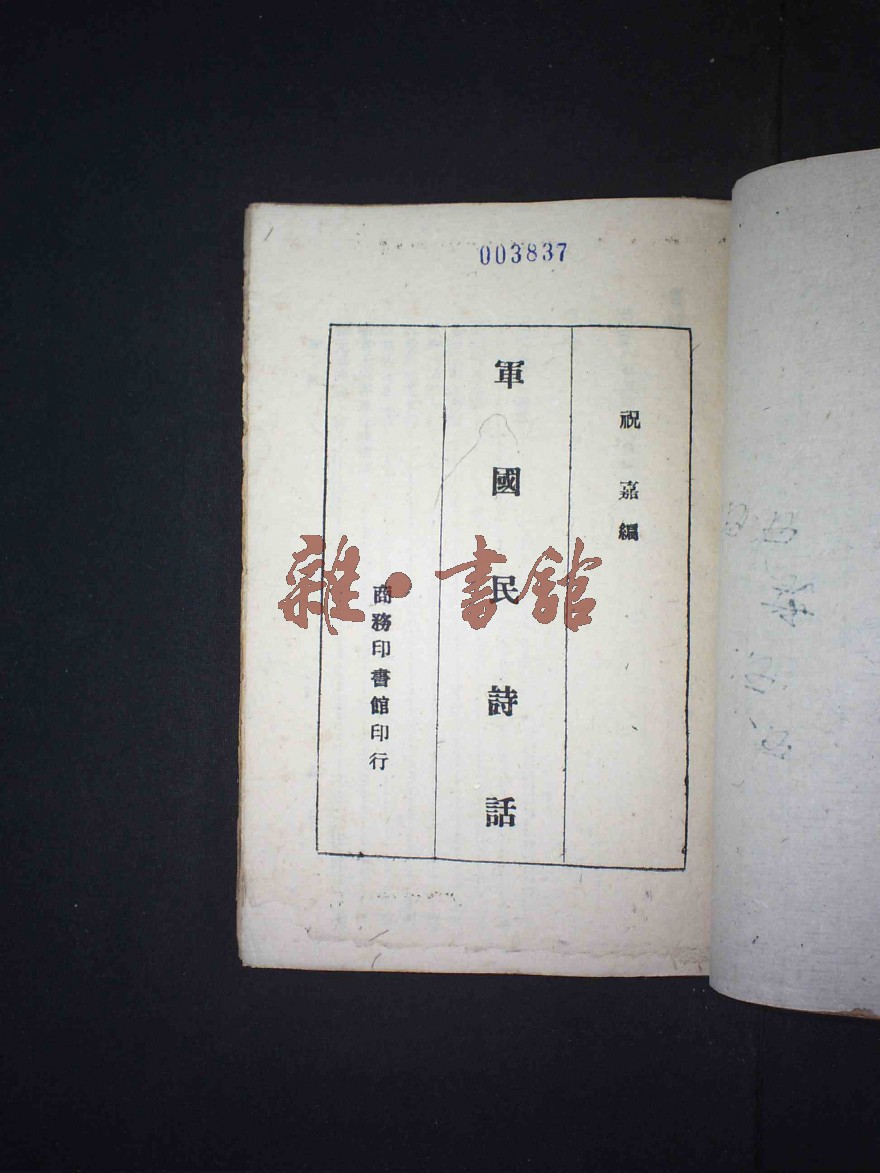 003837
祝嘉編
軍國民詩話
商務印書館印行
雜·書館